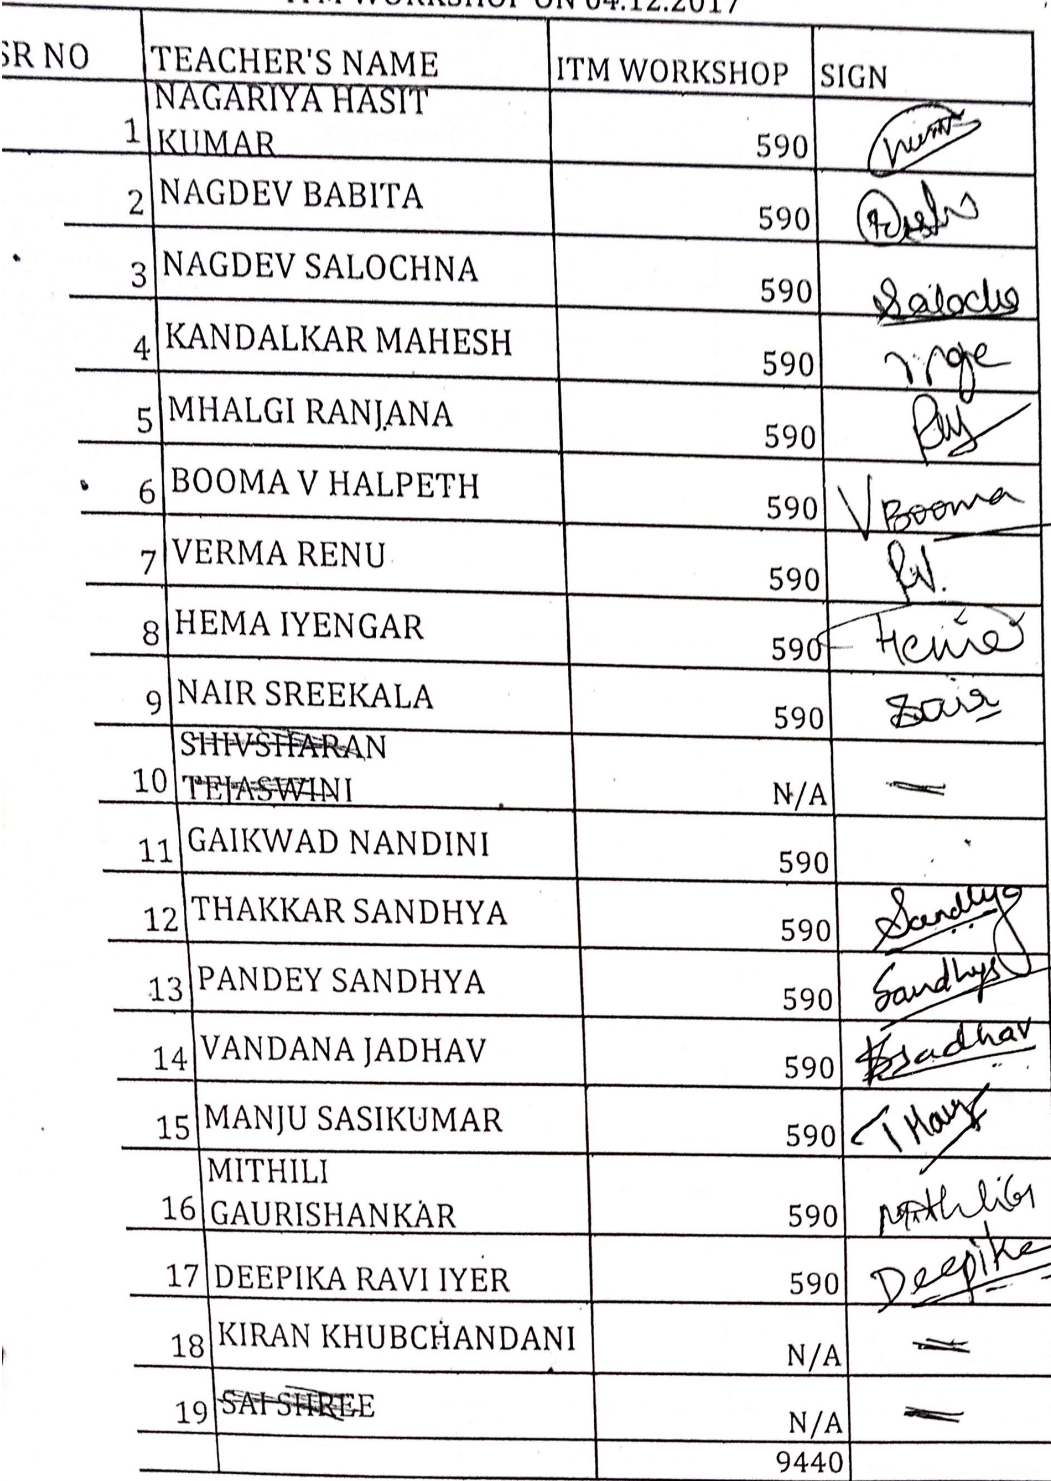 ITM WORKSHOP ON 04.12.2017
SR NO TEACHER'S NAME ITM WORKSHOP SIGN
NAGARIYA HASIT
1 KUMAR 590
2 NAGDEV BABITA 590
3 NAGDEV SALOCHNA 590
4 KANDALKAR MAHESH 590
5 MHALGI RANJANA 590
6 BOOMA V HALPETH 590 V Booma
7 VERMA RENU 590
8 HEMA IYENGAR 590
9 NAIR SREEKALA 590
SHIVSHARAN
10 TEJASWINI N/A
11 GAIKWAD NANDINI 590
12 THAKKAR SANDHYA 590 Sandhya
13 PANDEY SANDHYA 590 Sandhya
14 VANDANA JADHAV 590
15 MANJU SASIKUMAR 590
MITHILI
16 GAURISHANKAR 590
17 DEEPIKA RAVI IYER 590 Deepika
18 KIRAN KHUBCHANDANI N/A
19 SAI SHREE N/A
9440